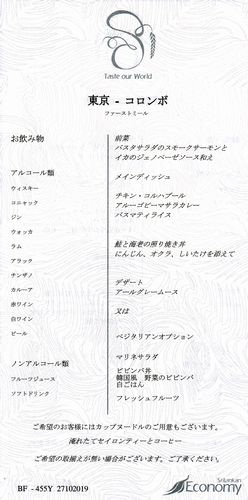 Taste our World
東京 - コロンボ
ファーストミール
お飲み物
アルコール類
ウィスキー
コニャック
ジン
ウォッカ
ラム
アラック
チンザノ
カルーア
赤ワイン
白ワイン
ビール
ノンアルコール類
フルーツジュース
ソフトドリンク
前菜
パスタサラダのスモークサーモンと
イカのジェノベーゼソース和え
メインディッシュ
チキン・コルハプール
アルーゴビーマサラカレー
バスマティライス
鮭と海老の照り焼き丼
にんじん、オクラ、しいたけを添えて
デザート
アールグレームース
又は
ベジタリアンオプション
マリネサラダ
ビビンバ丼
韓国風 野菜のビビンバ
白ごはん
フレッシュフルーツ
ご希望のお客様にはカップヌードルのご用意もございます。
淹れたてセイロンティーとコーヒー
ご希望の取揃えが無い場合がございます。ご了承ください。
BF - 455Y 27102019
SriLankan
Economy